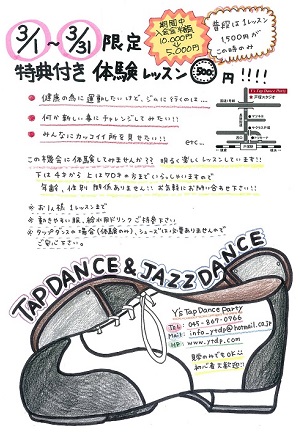 3/1～3/31 限定
期間中
入会金半額
10,000円
→5,000円
普段は1レッスン
1,500円が
この時のみ
特典付き 体験レッスン 500円!!!!
健康の為に運動したいけど、ジムに行くのは…
何か新しい事にチャレンジしてみたい!!
みんなにカッコイイ所を見せたい!!
etc…
Y's Tap Dance Party
この機会に体験してみませんか?? 明るく楽しくレッスンしています!!
下は4才から上は70才の方までいらっしゃいますので
年齢、性別関係ありません!! お気軽にお問い合わせ下さい!!
※お1人様1レッスンまで
※動きやすい服、給水用ドリンクご持参下さい
※タップダンスの場合(体験のみ)、シューズは必要ありませんので
ご安心下さい。
TAP DANCE & JAZZ DANCE
Y's Tap Dance Party
Tel: 045-867-0766
Mail: info_ytdp@hotmail.co.jp
HP: www.ytdp.com
見学のみでもOK
初心者大歓迎!!